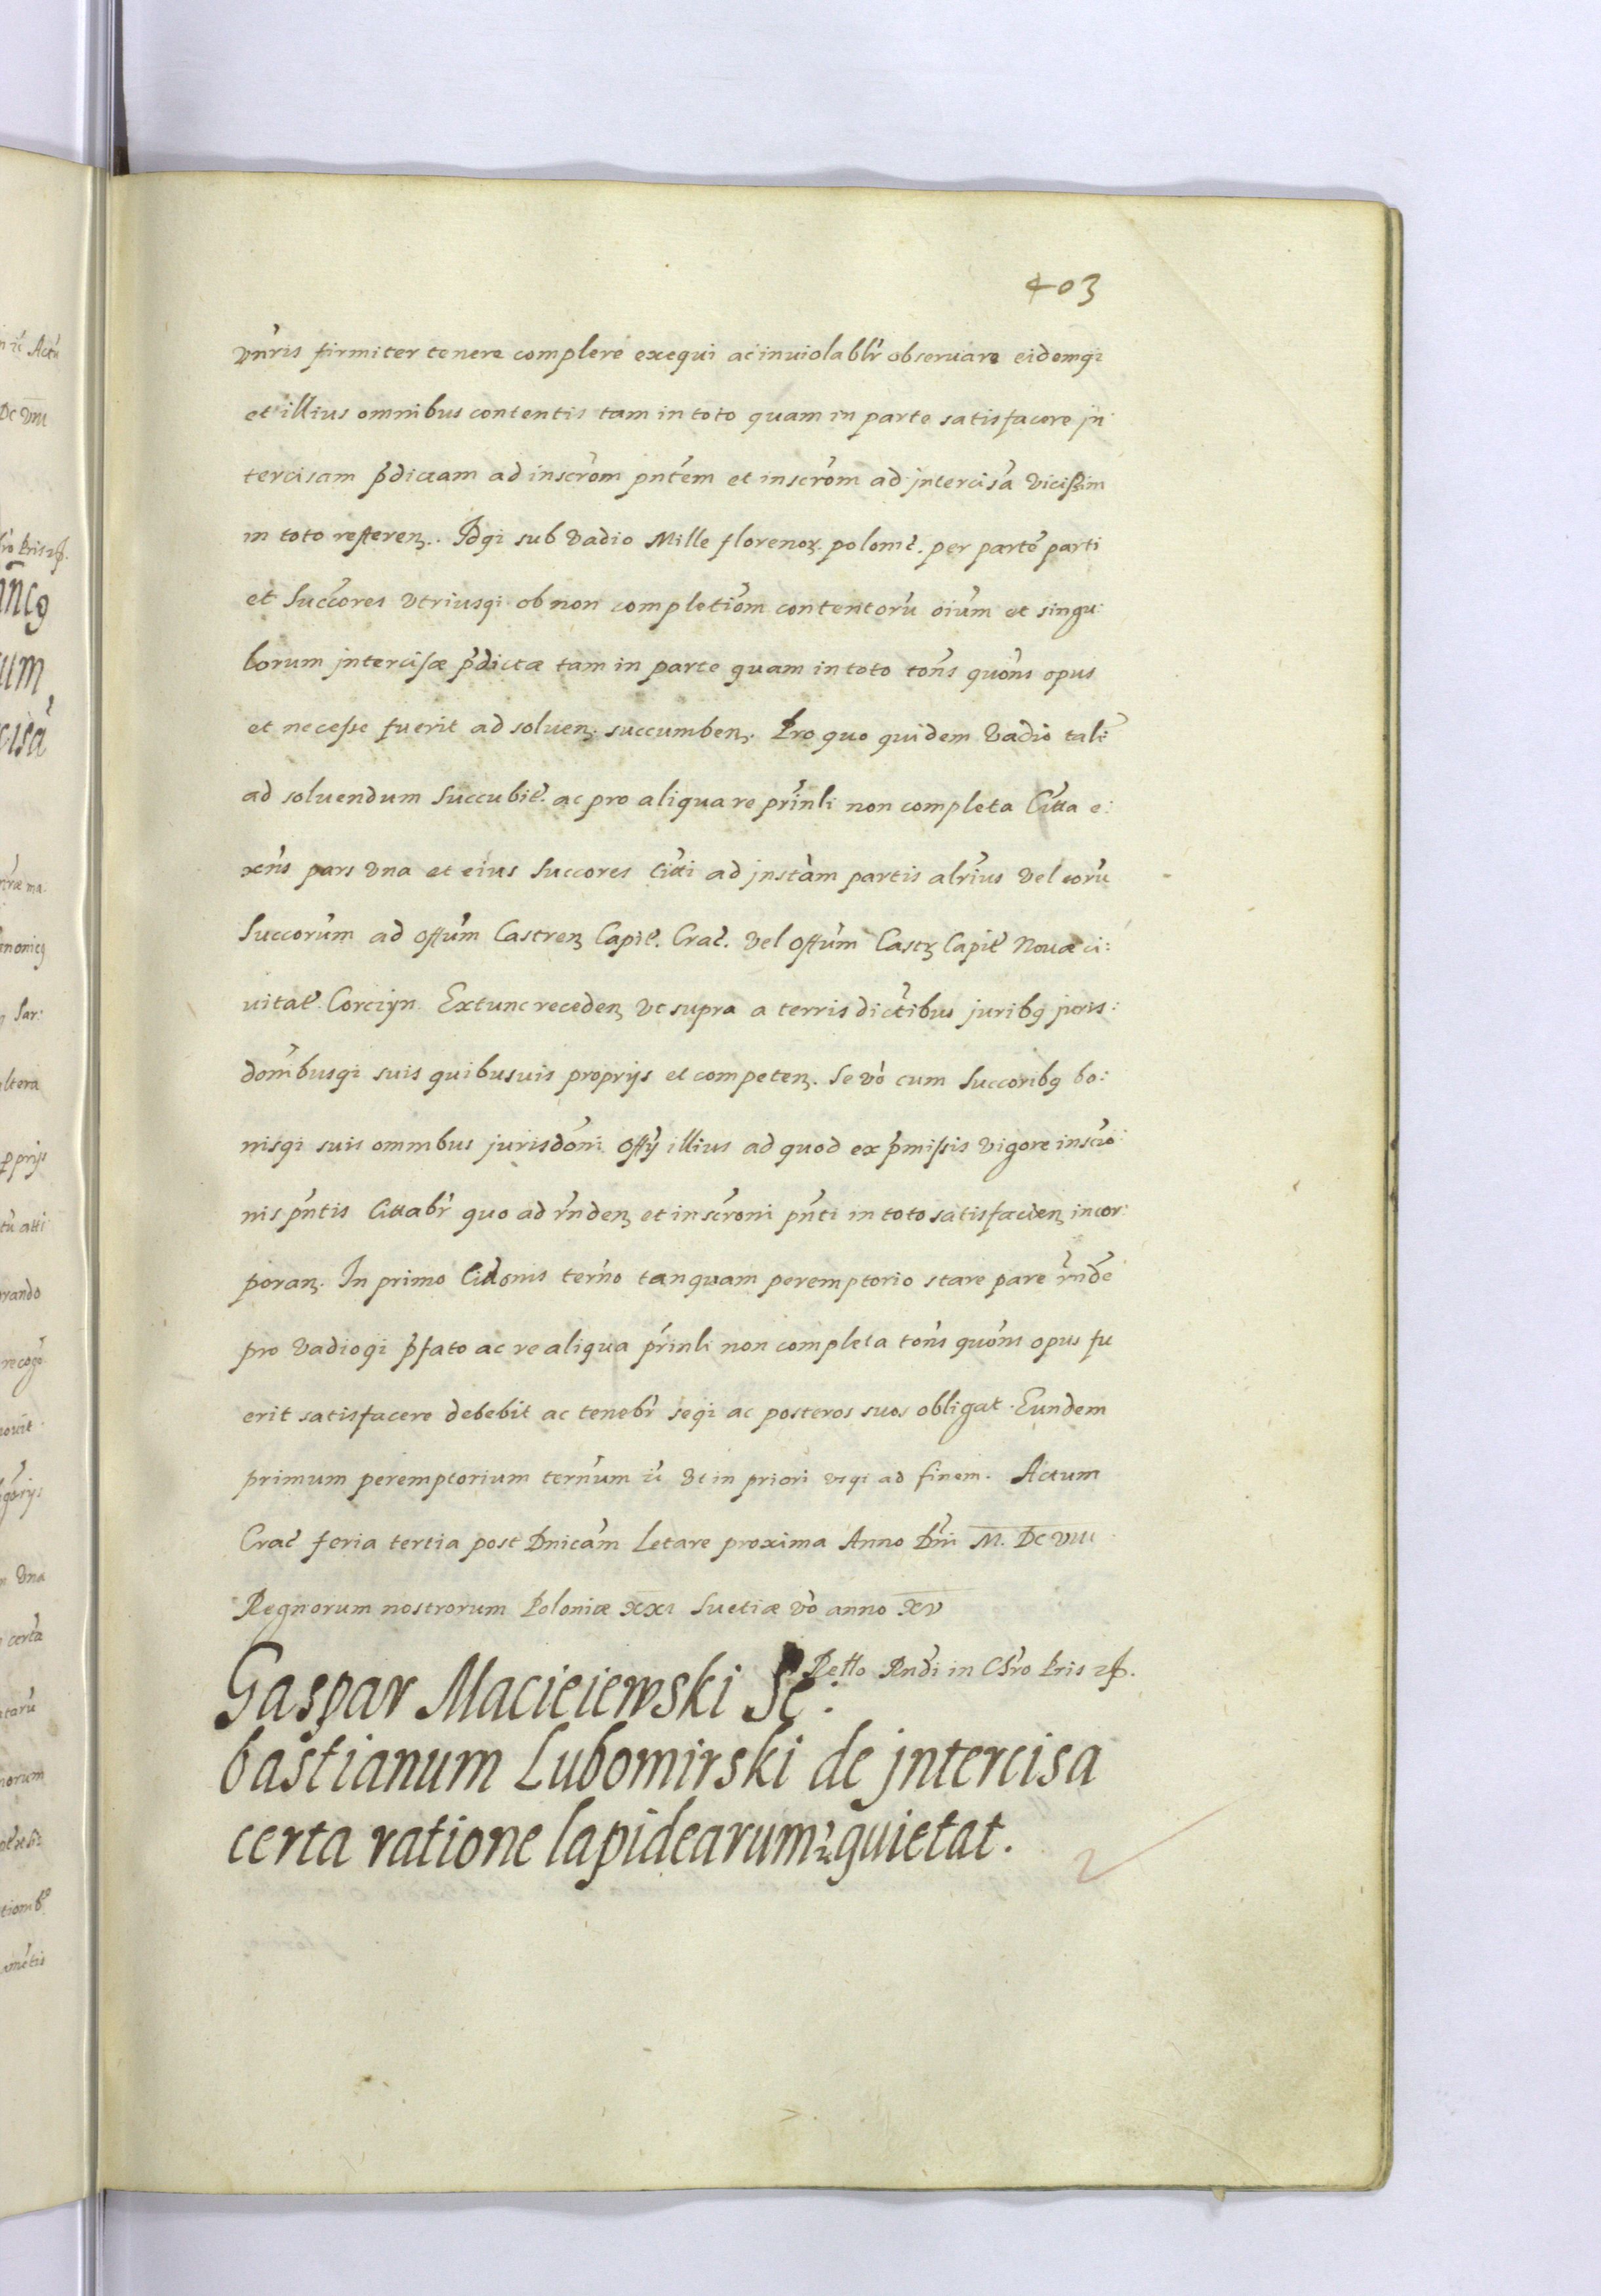 403
vnr̃is firmiter tenere complere exequi ac inuiolabłr obseruare eidemqꝫ
et illius omnibus contentis tam in toto quam in parte satisfacere jn
tercisam p̃dictam ad inscrõm pñtem et inscrõm ad jntercisã vicissim
in toto referenꝫ. Idqꝫ sub vadio Mille florenoꝝ. polonĩc. per partẽ parti
et Succ̃ores vtriusqꝫ ob non completiõm contentorũ oĩum et singu:
lorum jntercisæ p̃dictæ tam in parte quam in toto tõns quõns opus
et necesse fuerit ad soluenꝫ. succumbenꝫ. Pro quo quidem vadio talĩ
ad soluendum Succubit̃. ac pro aliqua re prĩnli non completa Citta e:
xñs pars vna et eius Succores Citti ad jnstãm partis altr̃ius vel eorũ
Succorũm ad Offũm Castrenꝫ Capit̃. Crac̃. vel Offũm Castrꝫ Capit̃ Nouæ ci:
uitat̃. Corczyn. Extunc recedenꝫ vt supra a terris dictĩbus juribꝫ juris:
dom̃busqꝫ suis quibusuis proprijs et competenꝫ. Se võ cum Succoribꝫ bo:
nisqꝫ suis omnibus jurisdõni Offỹ illius ad quod ex p̃missis vigore inscrõ
nis pñtis Cittabr̃ quo ad rñdenꝫ et inscrõni pñti in toto satisfacienꝫ incor:
poranꝫ. In primo Cittonis ter̃no tanquam peremptorio stare pare rñdẽ
pro vadioqꝫ p̃fato ac re aliqua prĩnli non completa tõns quõns opus fu
erit satisfacere debebit ac tenebr̃ seqꝫ ac posteros suos obligat. Eundem
primum peremptorium ter̃num ĩc vt in priori vsqꝫ ad finem. Actum
Crac̃ feria tertia post Dnicãm Letare proxima Anno Dñi M. DC VIII
Regnorum nostrorum Poloniæ XXI Suetiæ võ anno XV
Retto Rndi in Cstro Pris
Gaspar Macieiewski Se:
bastianum Lubomirski de jntercisa
certa ratione lapidearum quietat.